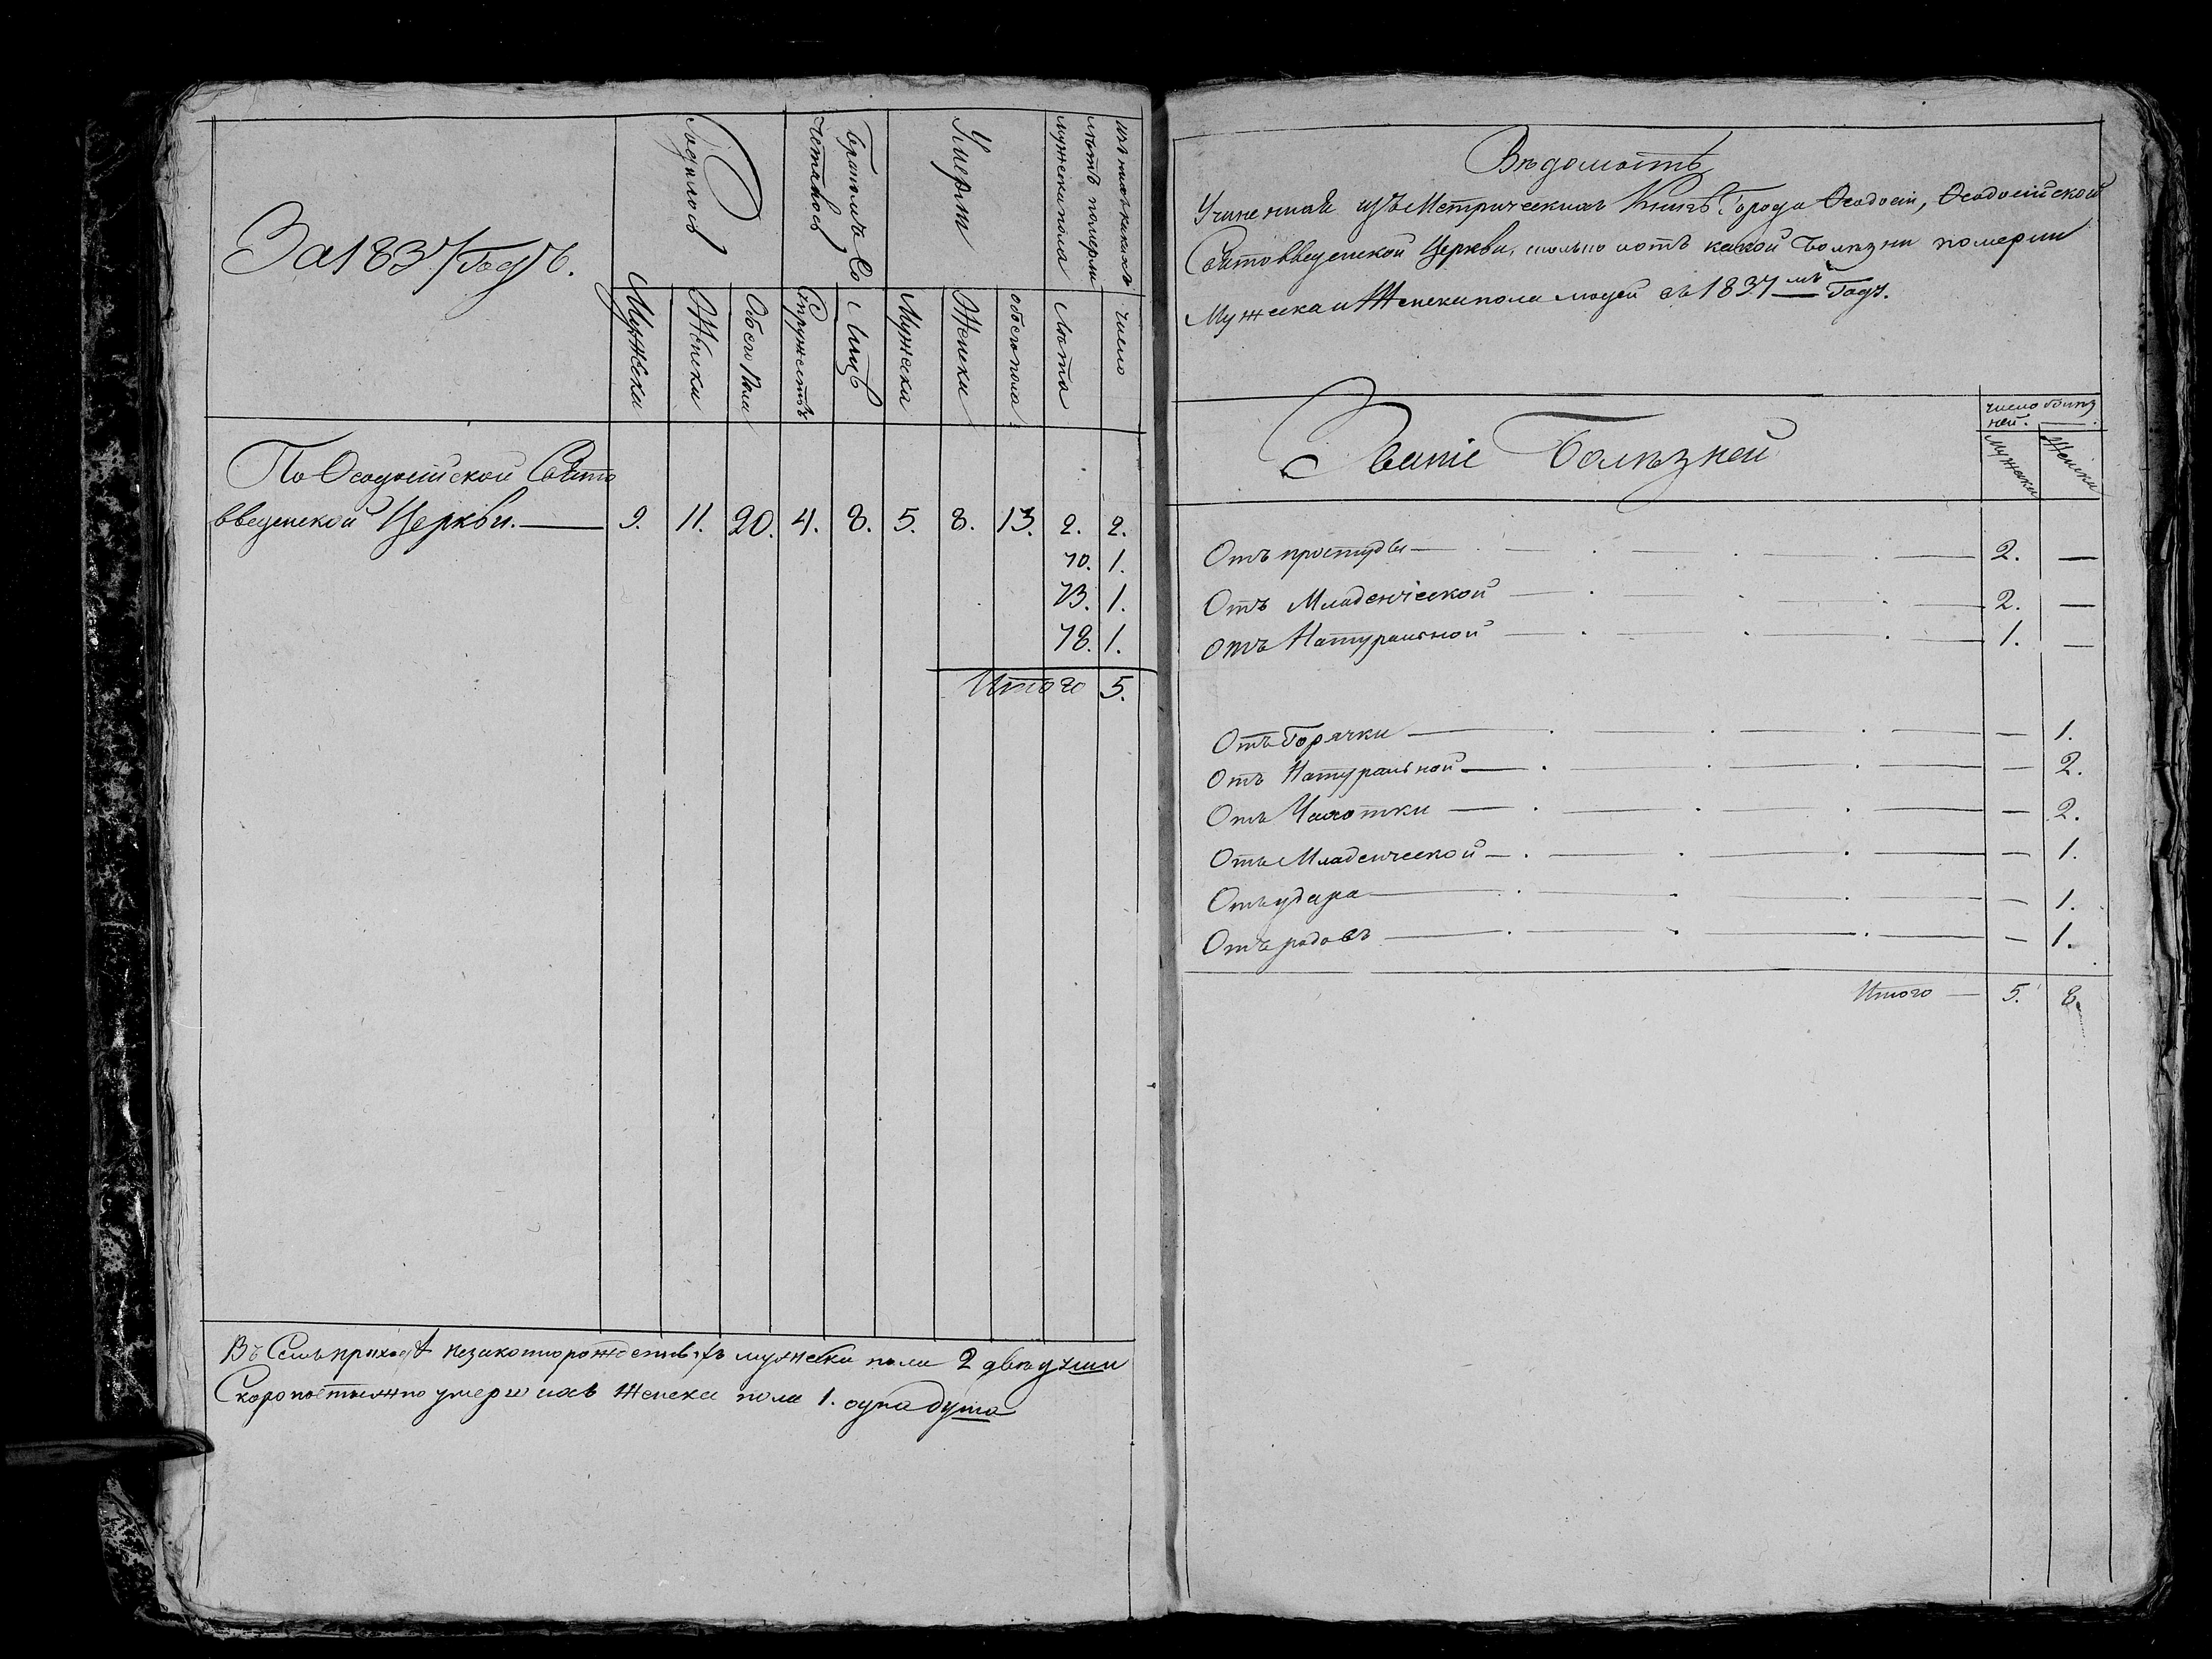 За 1837 Годъ.
Родилось
Бракомъ Со
четалось
Умерли
изъ нихъ какихъ
лѣтъ померли
мужеска пола
Мужеска
Женска
Обоего Пола
Супружествъ
Лицъ
Мужеска
Женска
обоего пола
Лѣта
число
По Ѳеодосійской Свято
введенской Церкви. 9. 11. 20. 4. 8. 5. 8. 13. 2. 2.
70. 1.
73. 1.
78. 1.
Итого 5.
Въ Семъ приходѣ незаконнорожденныхъ мужеска пола 2 двѣ души
Скоропостижно умершихъ женска пола 1. одна душа
Вѣдомость
Учиненная изъ Метрическихъ Книгъ Города Ѳеодосіи, Ѳеодосійской
Святовведенской Церкви, сколько и отъ какой болѣзни померли
Мужеска и Женска пола людей въ 1837мъ Году.
Званіе Болѣзней
число болѣз
ней.
Мужеска
Женска
Отъ простуды — 2. —
Отъ Младенческой — 2. —
Отъ Натуральной — 1. —
Отъ Горячки — — 1.
Отъ Натуральной — — 2.
Отъ Чахотки — — 2.
Отъ Младенческой — — 1.
Отъ удара — — 1.
Отъ родовъ — — 1.
Итого — 5. 8.